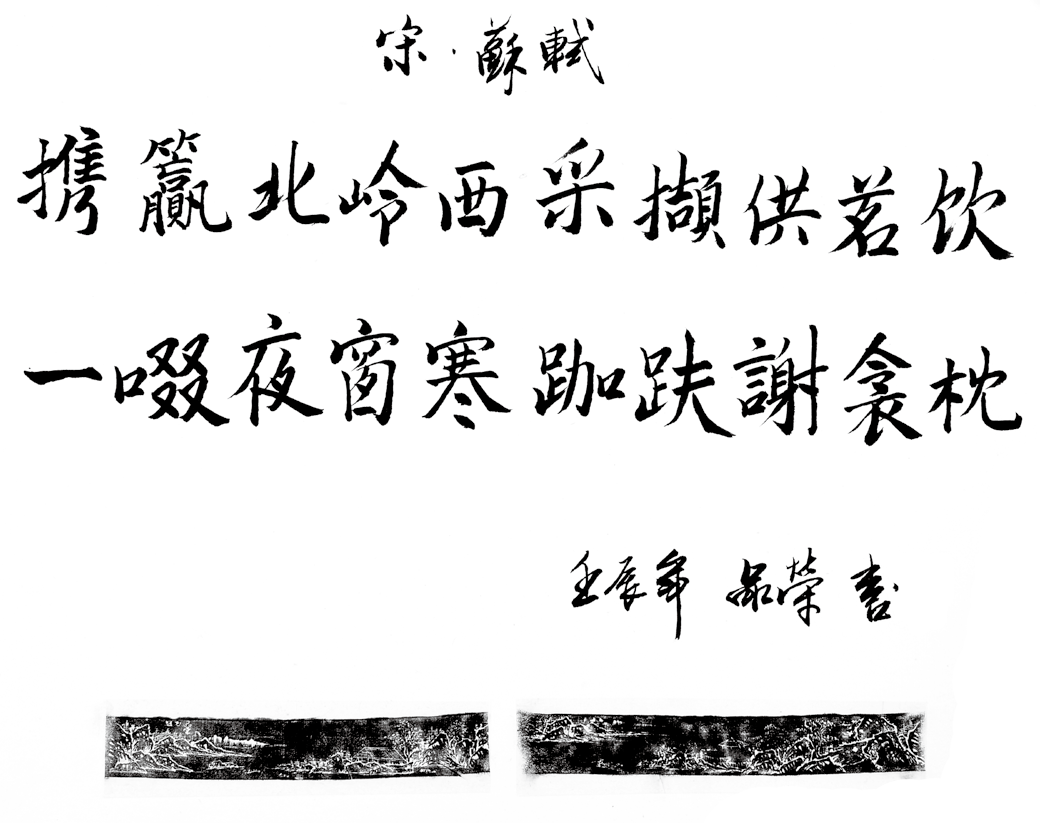 宋·蘇軾
携籯北岭西采擷供茗饮
一啜夜窗寒跏趺謝衾枕
壬辰年 品榮 書